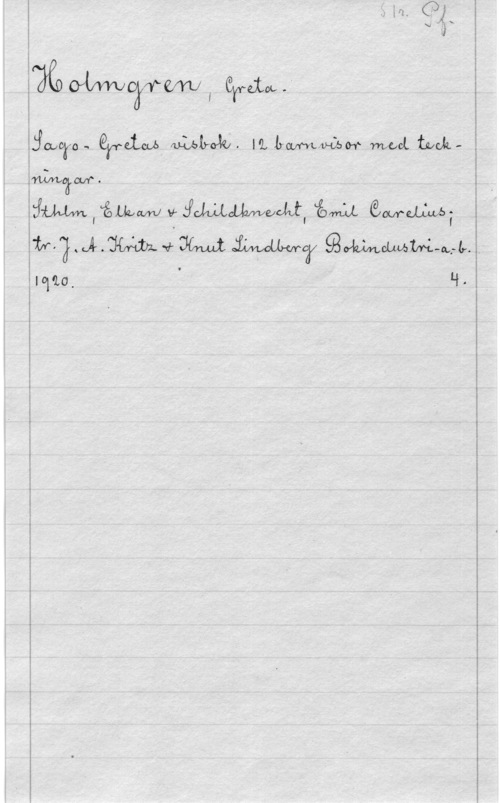 Str. Pf.
Holmgren, Greta.
Sago-Gretas visbok. 12 barnvisor med teck-
ningar.
Sthlm, Elkan & Schildknecht, Emil Carelius;
tr. J. A. Kritz & Knut Lindberg Bokindustri-a.-b.
1920. 4.